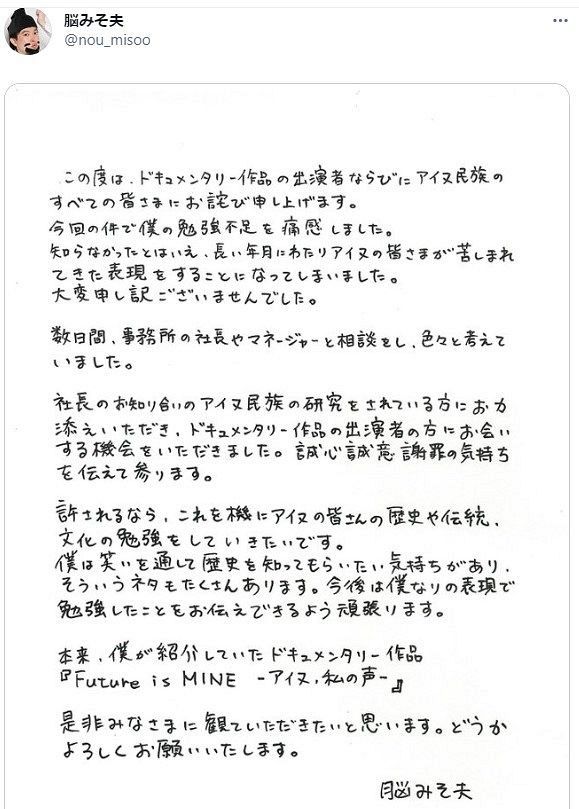 脳みそ夫
@nou_misoo
この度は、ドキュメンタリー作品の出演者ならびにアイヌ民族の
すべての皆さまにお詫び申し上げます。
今回の件で僕の勉強不足を痛感しました。
知らなかったとはいえ、長い年月にわたりアイヌの皆さまが苦しまれ
てきた表現をすることになってしまいました。
大変申し訳ございませんでした。
数日間、事務所の社長やマネージャーと相談をし、色々と考えて
いました。
社長のお知り合いのアイヌ民族の研究をされている方にお力
添えいただき、ドキュメンタリー作品の出演者の方にお会い
する機会をいただきました。誠心誠意謝罪の気持ち
を伝えて参ります。
許されるなら、これを機にアイヌの皆さんの歴史や伝統、
文化の勉強をしていきたいです。
僕は笑いを通して歴史を知ってもらいたい気持ちがあり、
そういうネタもたくさんあります。今後は僕なりの表現で
勉強したことをお伝えできるよう頑張ります。
本来、僕が紹介していたドキュメンタリー作品
『Future is MINE -アイヌ,私の声-』
是非みなさまに観ていただきたいと思います。どうか
よろしくお願いいたします。
脳みそ夫